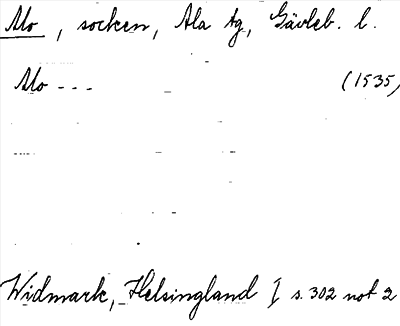 Mo, socken, Ala tg, Gävleb. l.
Mo --- (1535)
Widmark, Helsingland I s. 302 not 2